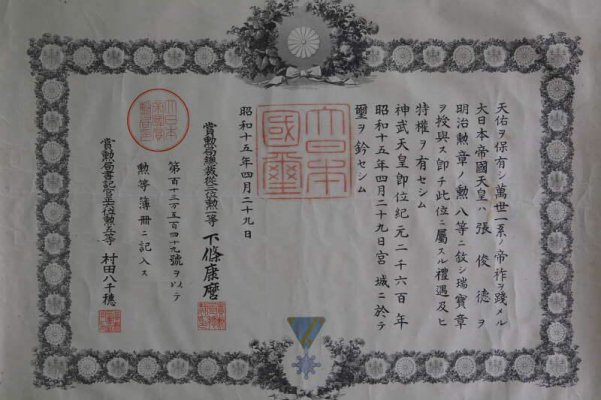 天佑ヲ保有シ萬世一系ノ帝祚ヲ踐メル
大日本帝國天皇ハ張俊德ヲ
明治勲章ノ勲八等ニ敘シ瑞寶章
ヲ授與ス卽チ此位ニ屬スル禮遇及ヒ
特權ヲ有セシム
神武天皇卽位紀元二千六百年
昭和十五年四月二十九日宮城ニ於テ
璽ヲ鈐セシム
大日本國璽
昭和十五年四月二十九日
賞勲局總裁從三位勲一等 下條康麿
第百十三万五百四十九號ヲ以テ
勲等簿冊ニ記入ス
賞勲局書記官正六位勲五等 村田八千穂